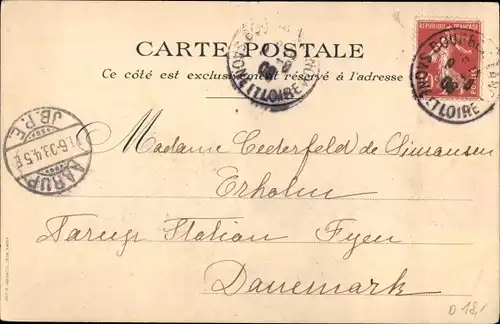 CARTE POSTALE
Ce côté est exclusivement réservé à l'adresse
SAONE ET LOIRE
BOURBON
SAONE ET LOIRE
AARUP
JB.P.E.
Madame Cederfeld de Simonsen
Erholm
Aarup Station Fyen
Danemark
D 18,